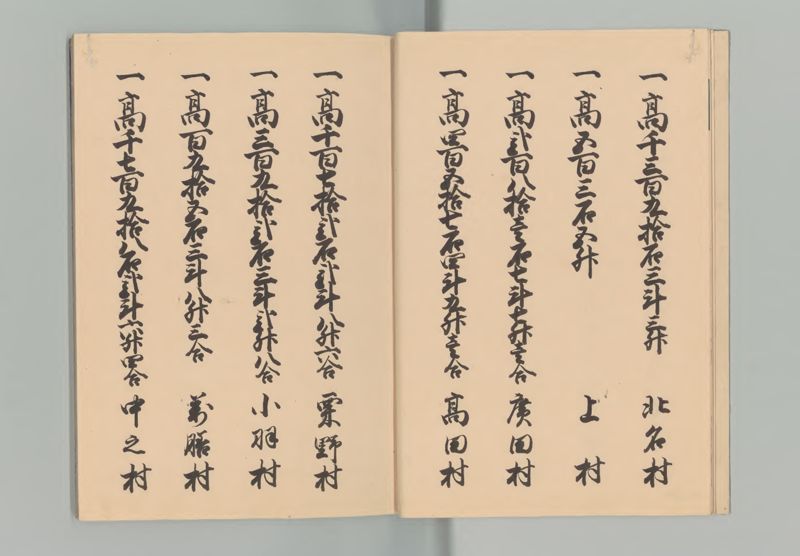 一高千三百九拾石三斗三升 北名村
一高五百三石五升 上村
一高弐百八拾壱石七斗七升壱合 廣田村
一高四百五拾七石四斗九升壱合 高田村
一高千百七拾弐石弐斗八升六合 粟野村
一高三百九拾弐石三斗弐升八合 小羽村
一高百九拾五石三斗八升三合 善膳村
一高千七百九拾八石弐斗六升四合 中之村